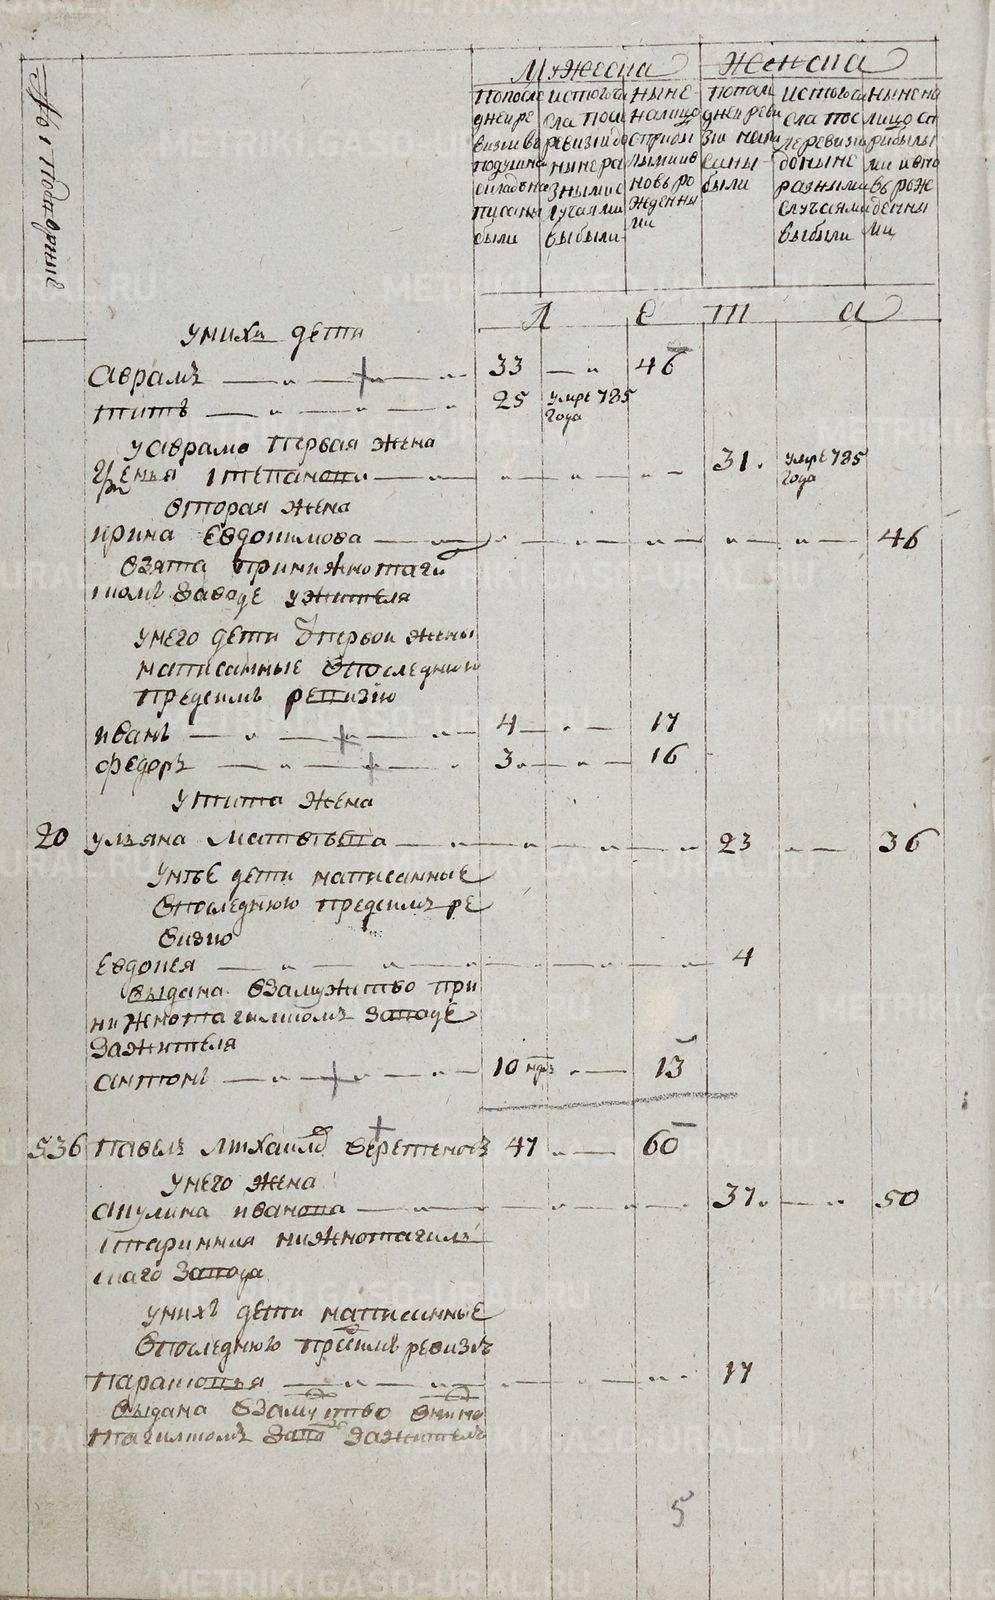 № 1 подворный
Мужеска Женска
По после дней ревизии в подушной оклад написаны были
Ис того числа после ревизии до ныне разными случаями выбыли
Ныне на лицо с прибылыми и вновь рожденными
По последней ревизии написаны были
Ис того числа после ревизии до ныне разными случаями выбыли
Ныне на лицо с прибылыми и вновь рожденными
Л е т а
у них дети
аврамъ 33 46
титъ 25 умре 785 года
у аврама первая жена
степанова 31. умре 785 года
вторая жена
ирина Евдокимова 46
взята при нижнотаги
скомъ заводе у жителя
у него дети от первои жены
написанные в последнюю
пред симъ ревизию
иванъ 4 17
федоръ 3 16
у тита жена
20 ульяна Матвеева 23 36
у нее дети написанные
в последнюю пред симъ ре
визию
Евдокея 4
выдана в замужство при
нижнотагилскомъ заводе
за жителя
антонъ 10 13
536 Павелъ Михаило Веретеновъ 47 60
у него жена
акулина иванова 37. 50
старинная нижнотагиль
скаго завода
у них дети написанные
в последнюю пред симъ ревизию
Парасковья 17
выдана в замуство в нижно
тагилскомъ заводе за жителя
5
METRIKI.GASO-URAL.RU